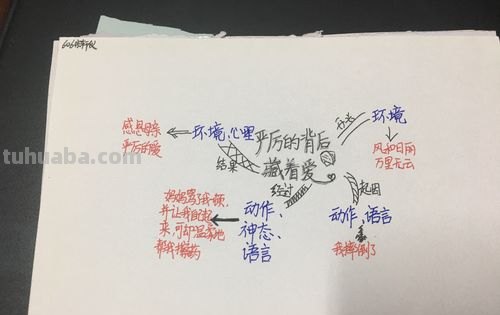 606
严厉的背后
藏着爱
环境
风和日丽
万里无云
起因
动作、语言
我摔倒了
经过
动作、
神态、
语言
妈妈骂了我一顿,
并让我自己起
来,可却地
帮我擦药
结果
环境、心理
感恩母亲
严厉的爱
tuhuaba.com